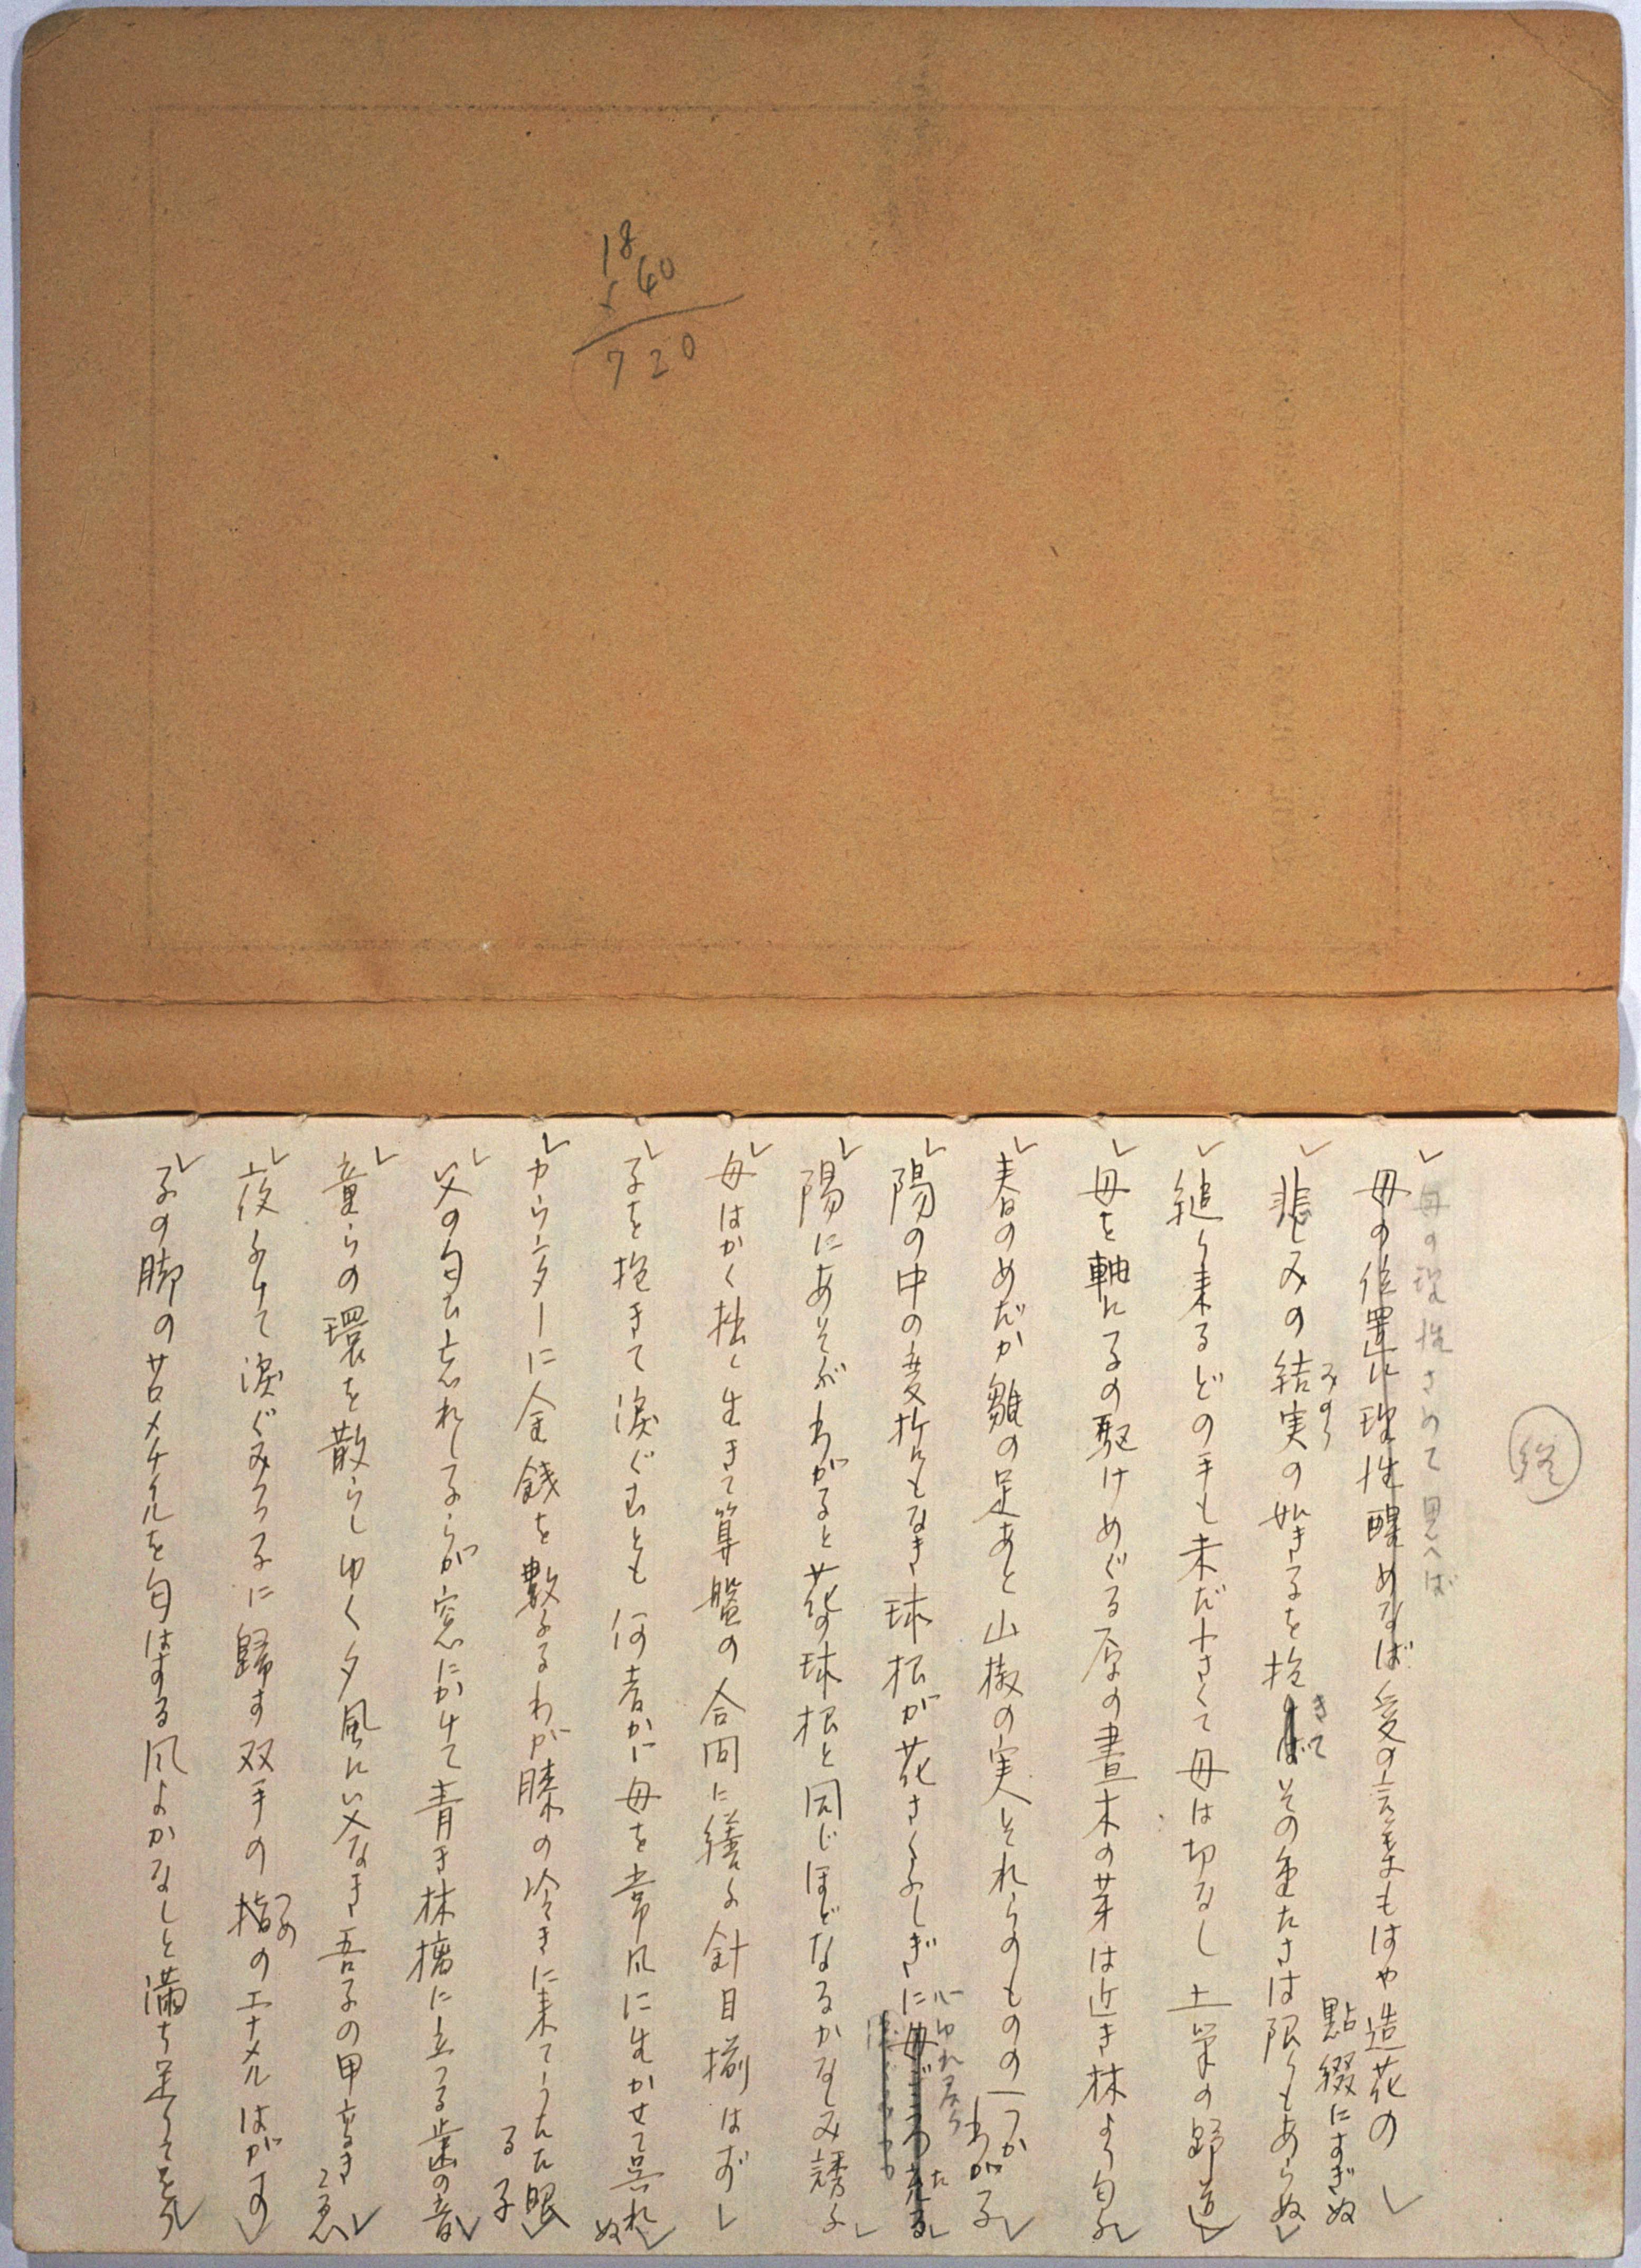 18
×40
720
終
母の理性さめて思へば
母の位置に理性醒めなば愛の言葉もはや造花の
點綴にすぎぬ
悲しみの結実の如き子を抱きてその重たさは限りもあらぬ
みのり
縋り来るどの手も未だ小さくて母は切なし土筆の野道
母を軸に子の駆けめぐる原の昼木の芽は近き林より匂ふ
春のめだか雛の足あと山椒の実それらのものの一つかわが子
陽の中の変哲もなき球根が花さくふしぎに心ゆれ居り
陽にあそぶわが子と花の球根と同じほどなるかなしみ誘ふ
母はかく拙く生きて算盤の合間に繕ふ針目揃はず
子を抱きて涙ぐむとも何者かに母を常凡に生かせて呉れぬ
カウンターに金銭を数ふるわが膝の冷きに来てうたた眠る子
父の匂ひ忘れし子らが窓にかけて青き林檎に立つる歯の音
童らの環を散らしゆく夕風に父なき吾子の甲高き声
夜ふけて涙ぐみつつ子に帰す双手の指のエナメルはがす
つめ
子の脚の サロメチイルを匂はする風よかなしと満ち足りてをり